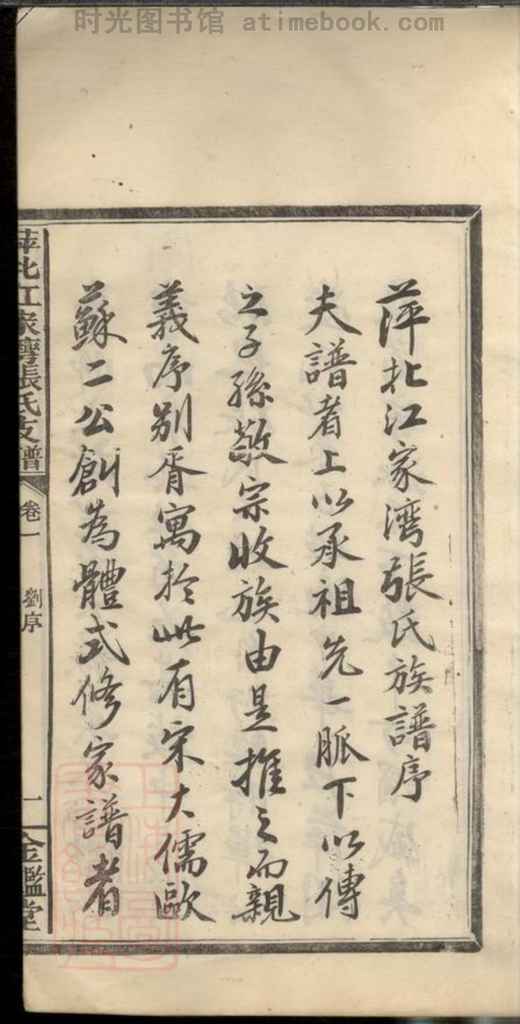 时光图书馆 atimebook.com
萍北江家湾張氏族譜序
夫譜者上以承祖先一脈下以傳
之子孫敬宗收族由是推之而親
義序别胥寓於此有宋大儒歐
蘇二公創為體式修家譜者
萍北江家灣張氏支譜 卷一 劉序 一 金鑑堂